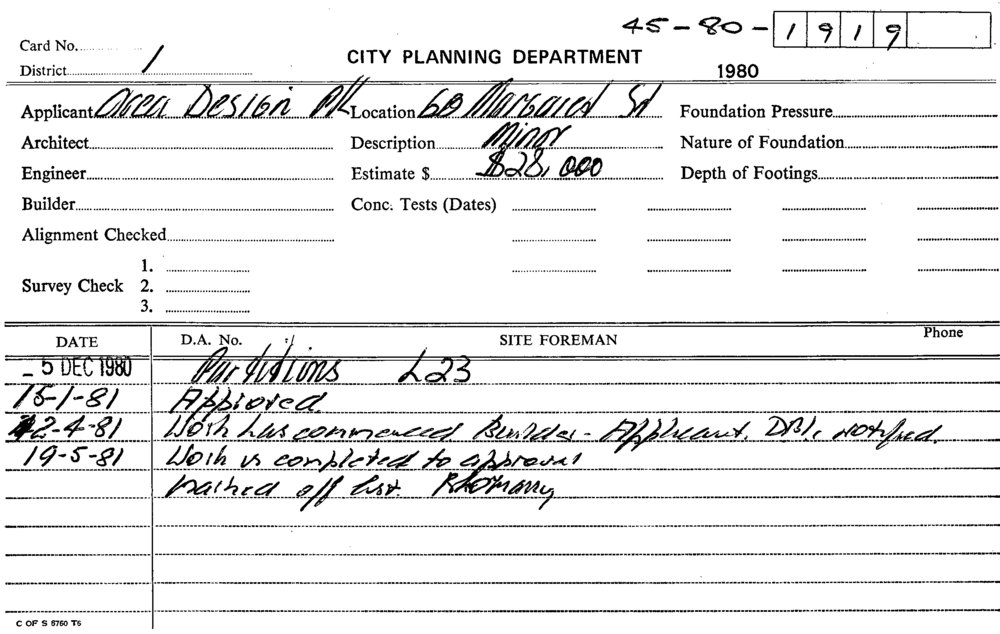 45-80-1919
Card No.
District 1
CITY PLANNING DEPARTMENT
1980
Applicant Area Design P/L Location 60 Margaret St Foundation Pressure
Architect Description Minor Nature of Foundation
Engineer Estimate $ $28,000 Depth of Footings
Builder Conc. Tests (Dates)
Alignment Checked
1.
Survey Check 2.
3.
DATE D.A. No. SITE FOREMAN Phone
5 DEC 1980 Partitions L23
15-1-81 Approved.
2-4-81 Work has commenced Builder - Applicant. notified.
19-5-81 Work is completed to approval
marked off list.
C OF S 6760 T6